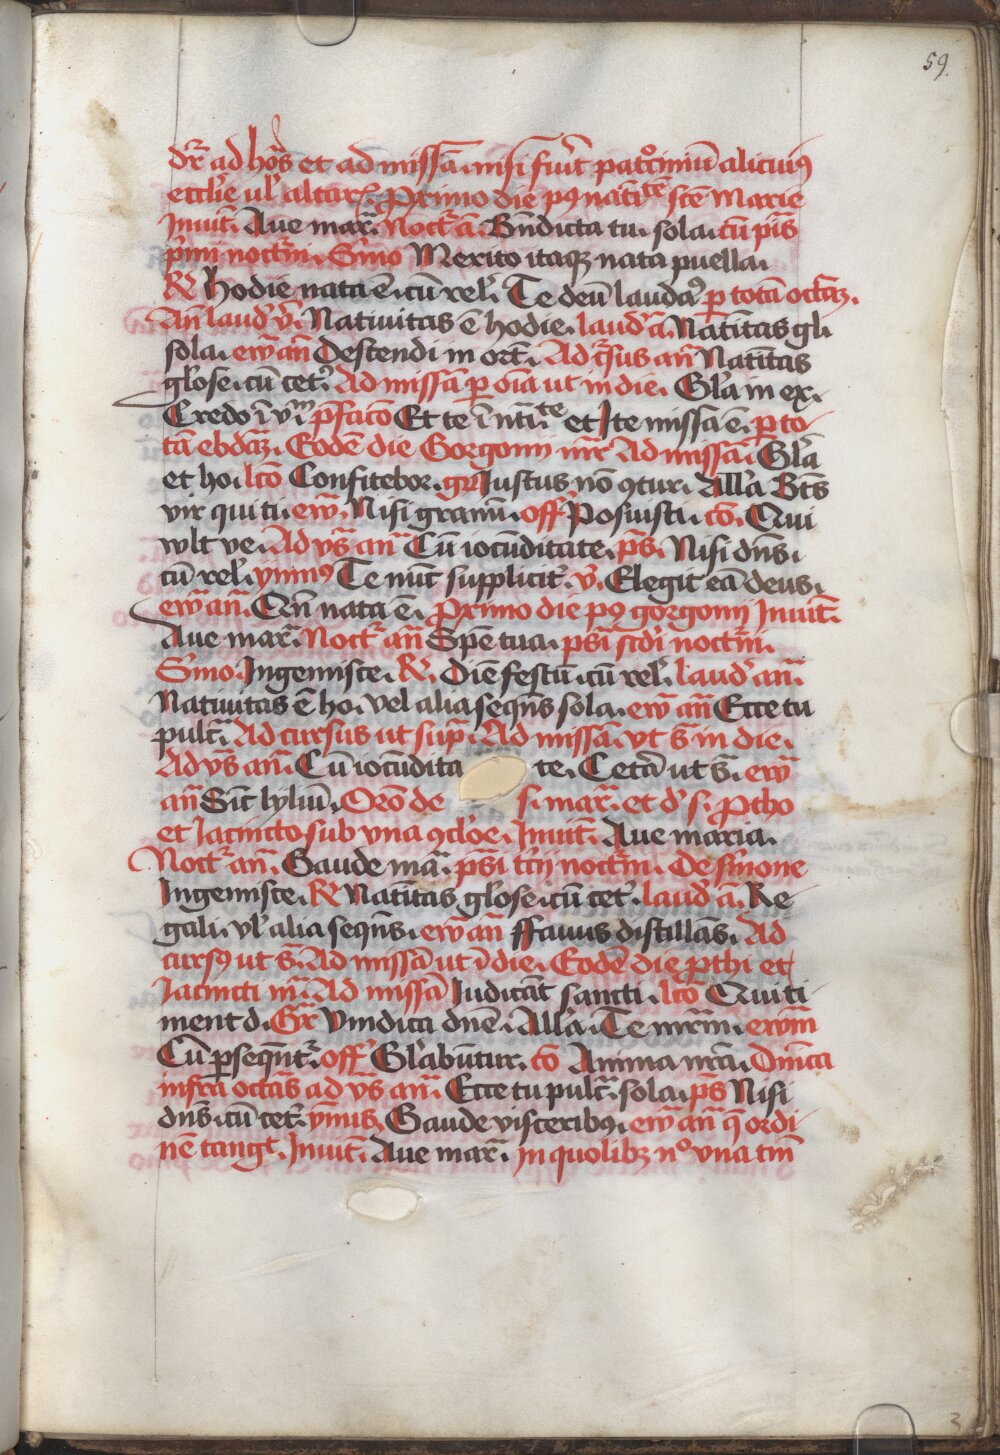 59.
dr̄ ad hor̄s et ad missā. nisi fuer̄t patrōimiū alicuiꝰ
eccl̄ie ul̓ altar̄. Primo die pꝰ nati̅te̅ sc̄e Marie
Inuit̄. Aue mar̄. Noct̄r ā. Bn̄dicta tu. sola. cū ps̄is
p̄mi noct̄ni. S̓mo Merito itaqꝫ nata puella.
R̄ Hodie nata ē. cū rel̓. Te deū laudaꝰ p̱ totā octāꝫ.
An̄ laud̓ ꝟ. Natiuitas ē hodie. laud̓ ā. Natīitas gl̓i
sola. ew̄ an̄ Descendi in ort̄. Ad cūrsus an̄ Natīitas
gl̓ose. cū cet̓. Ad missā p̱ oīa ut in die. Gl̓a in ex.
Credo ī vnū p̄facō Et te ī nāti̅te̅ et Ite missa ē. p̱ to
tā ebdāꝫ. Eodē die Gorgonij mr̄ Ad missā. Gl̓a
et ho. lcō Confitebor. gr̄ Iustus nō ꝯtur. All̓a Bt̄s
vir qui ti. ew̄. Nisi granū. off̄ Posuisti. cō. Qui
wlt ve. Ad vs̄ an̄ Cū iocūditate. ps̄. Nisi dn̄s.
cū rel̓. ymnꝰ Te nūc supplicit̓. ꝟ. Elegit eā deus.
ew̄ an̄. Qn̄ nata ē. Pximo die pꝰ gorgonij Inuit̄.
Aue mar̄. Noct̓ an̄ Spē tua. ps̄i sc̄di noct̄ni.
S̓mo. Ingemisce. R̄. Diē festū. cū rel̓. laud̓ an̄.
Natiuitas ē ho. vel alia seqn̄s sola. ew̄ an̄ Ecce tu
pulc̄. Ad cursus ut sup̄. Ad missā. vt s̄ in die.
Ad vs̄ an̄. Cū iocūdita te. Cet̄a ut s̄. ew̄
an̄ Sic̄ lyliū. Orō de s. mar̄. et d̓ s. Ptho
et Jacincto sub vna ꝯcl̓oe. Inuit̄. Aue maria.
Noct̓ an̄. Gaude ma̅. ps̄i t̄cij noct̄ni. De s̓mone
Ingemisce. R̄ Natīitas gl̓ose. cū cet̓. laud̓ ā. Re
gali. vl̓ alia seqn̄s. ew̄ an̄ ffauus distillās. Ad
cursꝰ ut s̄. Ad missā ut ī die. Eodē die p̱thi et
Jacincti mr̄ Ad missā Iudicāt sancti. lcō Qui ti
ment d. Gr̄ Vindica dnē. All̓a. Te mr̄m. ewm̄
Cū p̱seqūnt̓. off̄ Gl̓abūtur. cō Anima nr̄a. Dn̄ica
infra octās ad vs̄ an̄. Ecce tu pulc̄. sola. ps̄ Nisi
dn̄s. cū cet̓. ymnꝰ Gaude visceribꝰ. ew̄ an̄ q̄ ordi
nē tangt̄. Inuit̄. Aue mar̄. In quolibꝫ n̊ vna tm̄